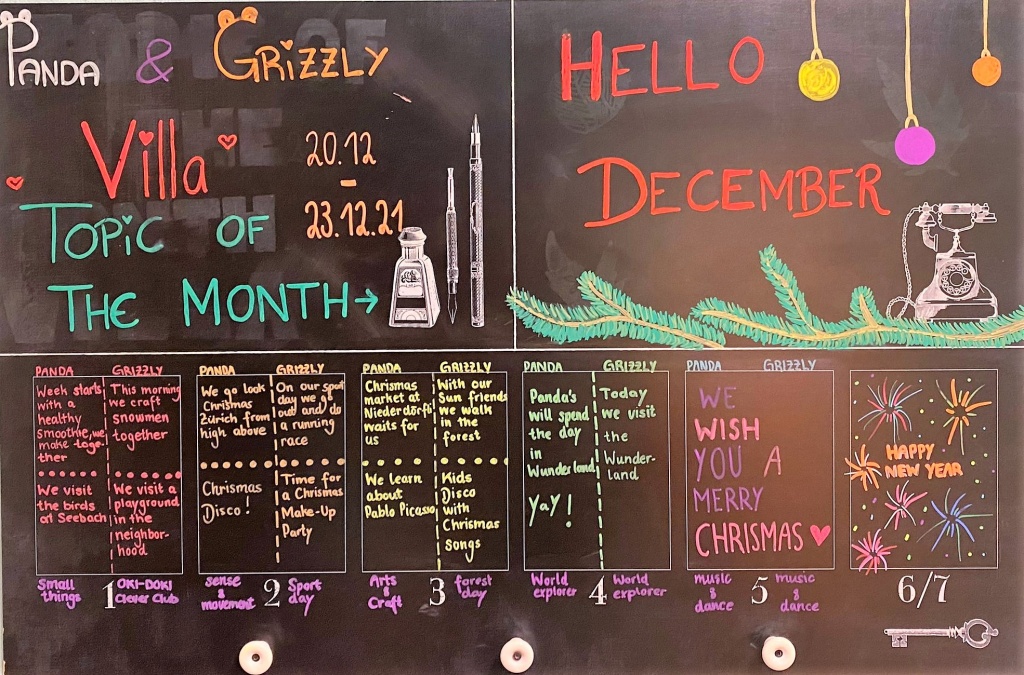 PANDA & GRIZZLY
Villa
20.12
-
23.12.21
TOPIC OF
THE MONTH →
HELLO
DECEMBER
PANDA GRIZZLY
Week starts
with a
healthy
smoothie, we
make toge-
ther
This morning
we craft
snowmen
together
We visit
the birds
at Seebach
We visit a
playground
in the
neighbor-
hood
Small
things
1
OKI-DOKI
Clever Club
PANDA GRIZZLY
We go look
Chrismas
Zürich from
high above
On our spot
day we go
out and do
a running
race
Chrismas
Disco!
Time for
a Chrismas
Make-Up
Party
sense
& movement
2
Sport
day
PANDA GRIZZLY
Chrismas
market at
Niederdörfli
waits for
us
With our
Sun friends
we walk
in the
forest
We learn
about
Pablo Picasso
Kids
Disco
with
Chrismas
songs
Arts
&
Craft
3
forest
day
PANDA GRIZZLY
Panda's
will spend
the day
in
Wunderland
YaY!
Today
we visit
the
Wunder-
land
World
explorer
4
World
explorer
PANDA GRIZZLY
WE
WISH
YOU A
MERRY
CHRISMAS
music
&
dance
5
music
&
dance
HAPPY
NEW YEAR
6/7